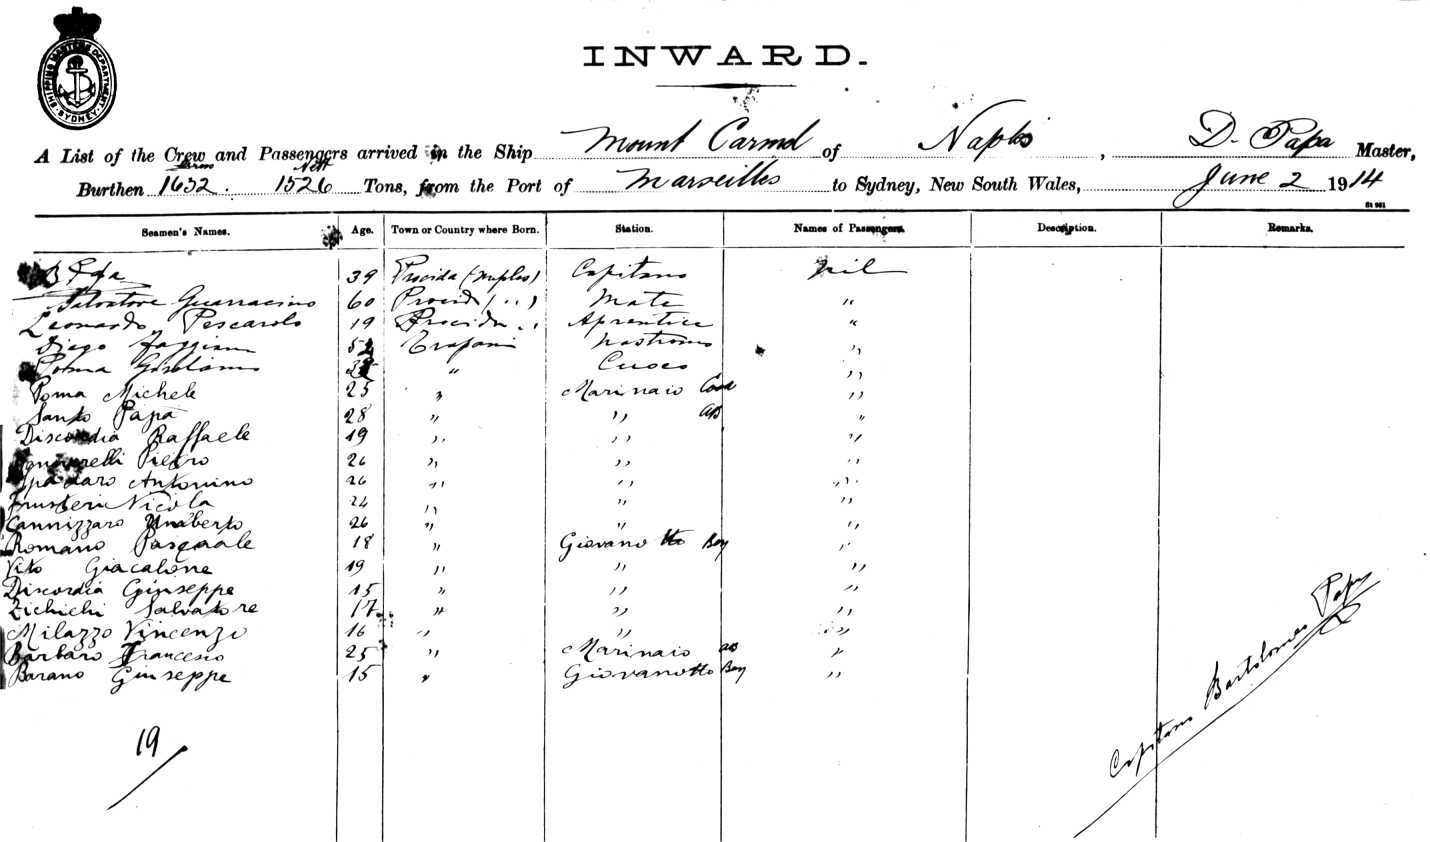 SHIPPING MASTERS DEPARTMENT
SYDNEY
INWARD.
A List of the Crew and Passengers arrived in the Ship Mount Carmel of Naples, D. Papa Master,
Burthen Gross 1632. Nett 1526 Tons, from the Port of Marseilles to Sydney, New South Wales, June 2 1914
Seamen's Names. Age. Town or Country where Born. Station. Names of Passengers. Description. Remarks.
B Papa 39 Procida (Naples) Capitano nil
Salvatore Guarracino 60 Procida ( " ) Mate "
Leonardo Pescarolo 19 Procida " Aprentice "
Diego 52 Trapani Nostromo "
Poma Girolamo " Cuoco "
Poma Michele 25 " Marinaio Cook "
Santo Papa 28 " " AB "
Discordia Raffaele 19 " " "
Pietro 26 " " "
Spadaro Antonino 26 " " "
Frusteri Nicola 24 " " "
Cannizzaro Umaberto 26 " " "
Romano Pasquale 18 " Giovanotto Boy "
Vito Giacalone 19 " " "
Discordia Giuseppe 15 " " "
Zichichi Salvatore 17 " " "
Milazzo Vincenzo 16 " " "
Barbaro Francesco 25 " Marinaio AB "
Barano Giuseppe 15 " Giovanotto Boy "
19
Capitano Bartolomeo Papa